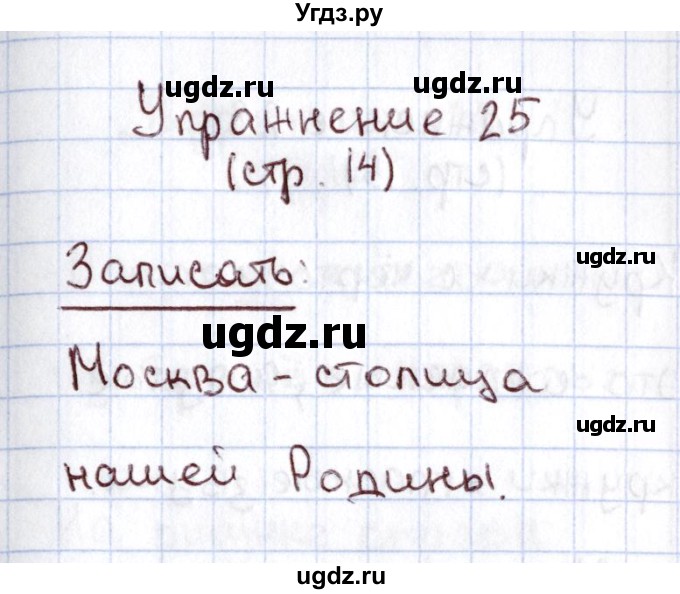 Угдз.ру
ugdz.ru ugdz.ru
Упражнение 25
(стр. 14)
ugdz.ru
Записать:
ugdz.ru
Москва - столица
ugdz.ru
нашей Родины.
ugdz.ru